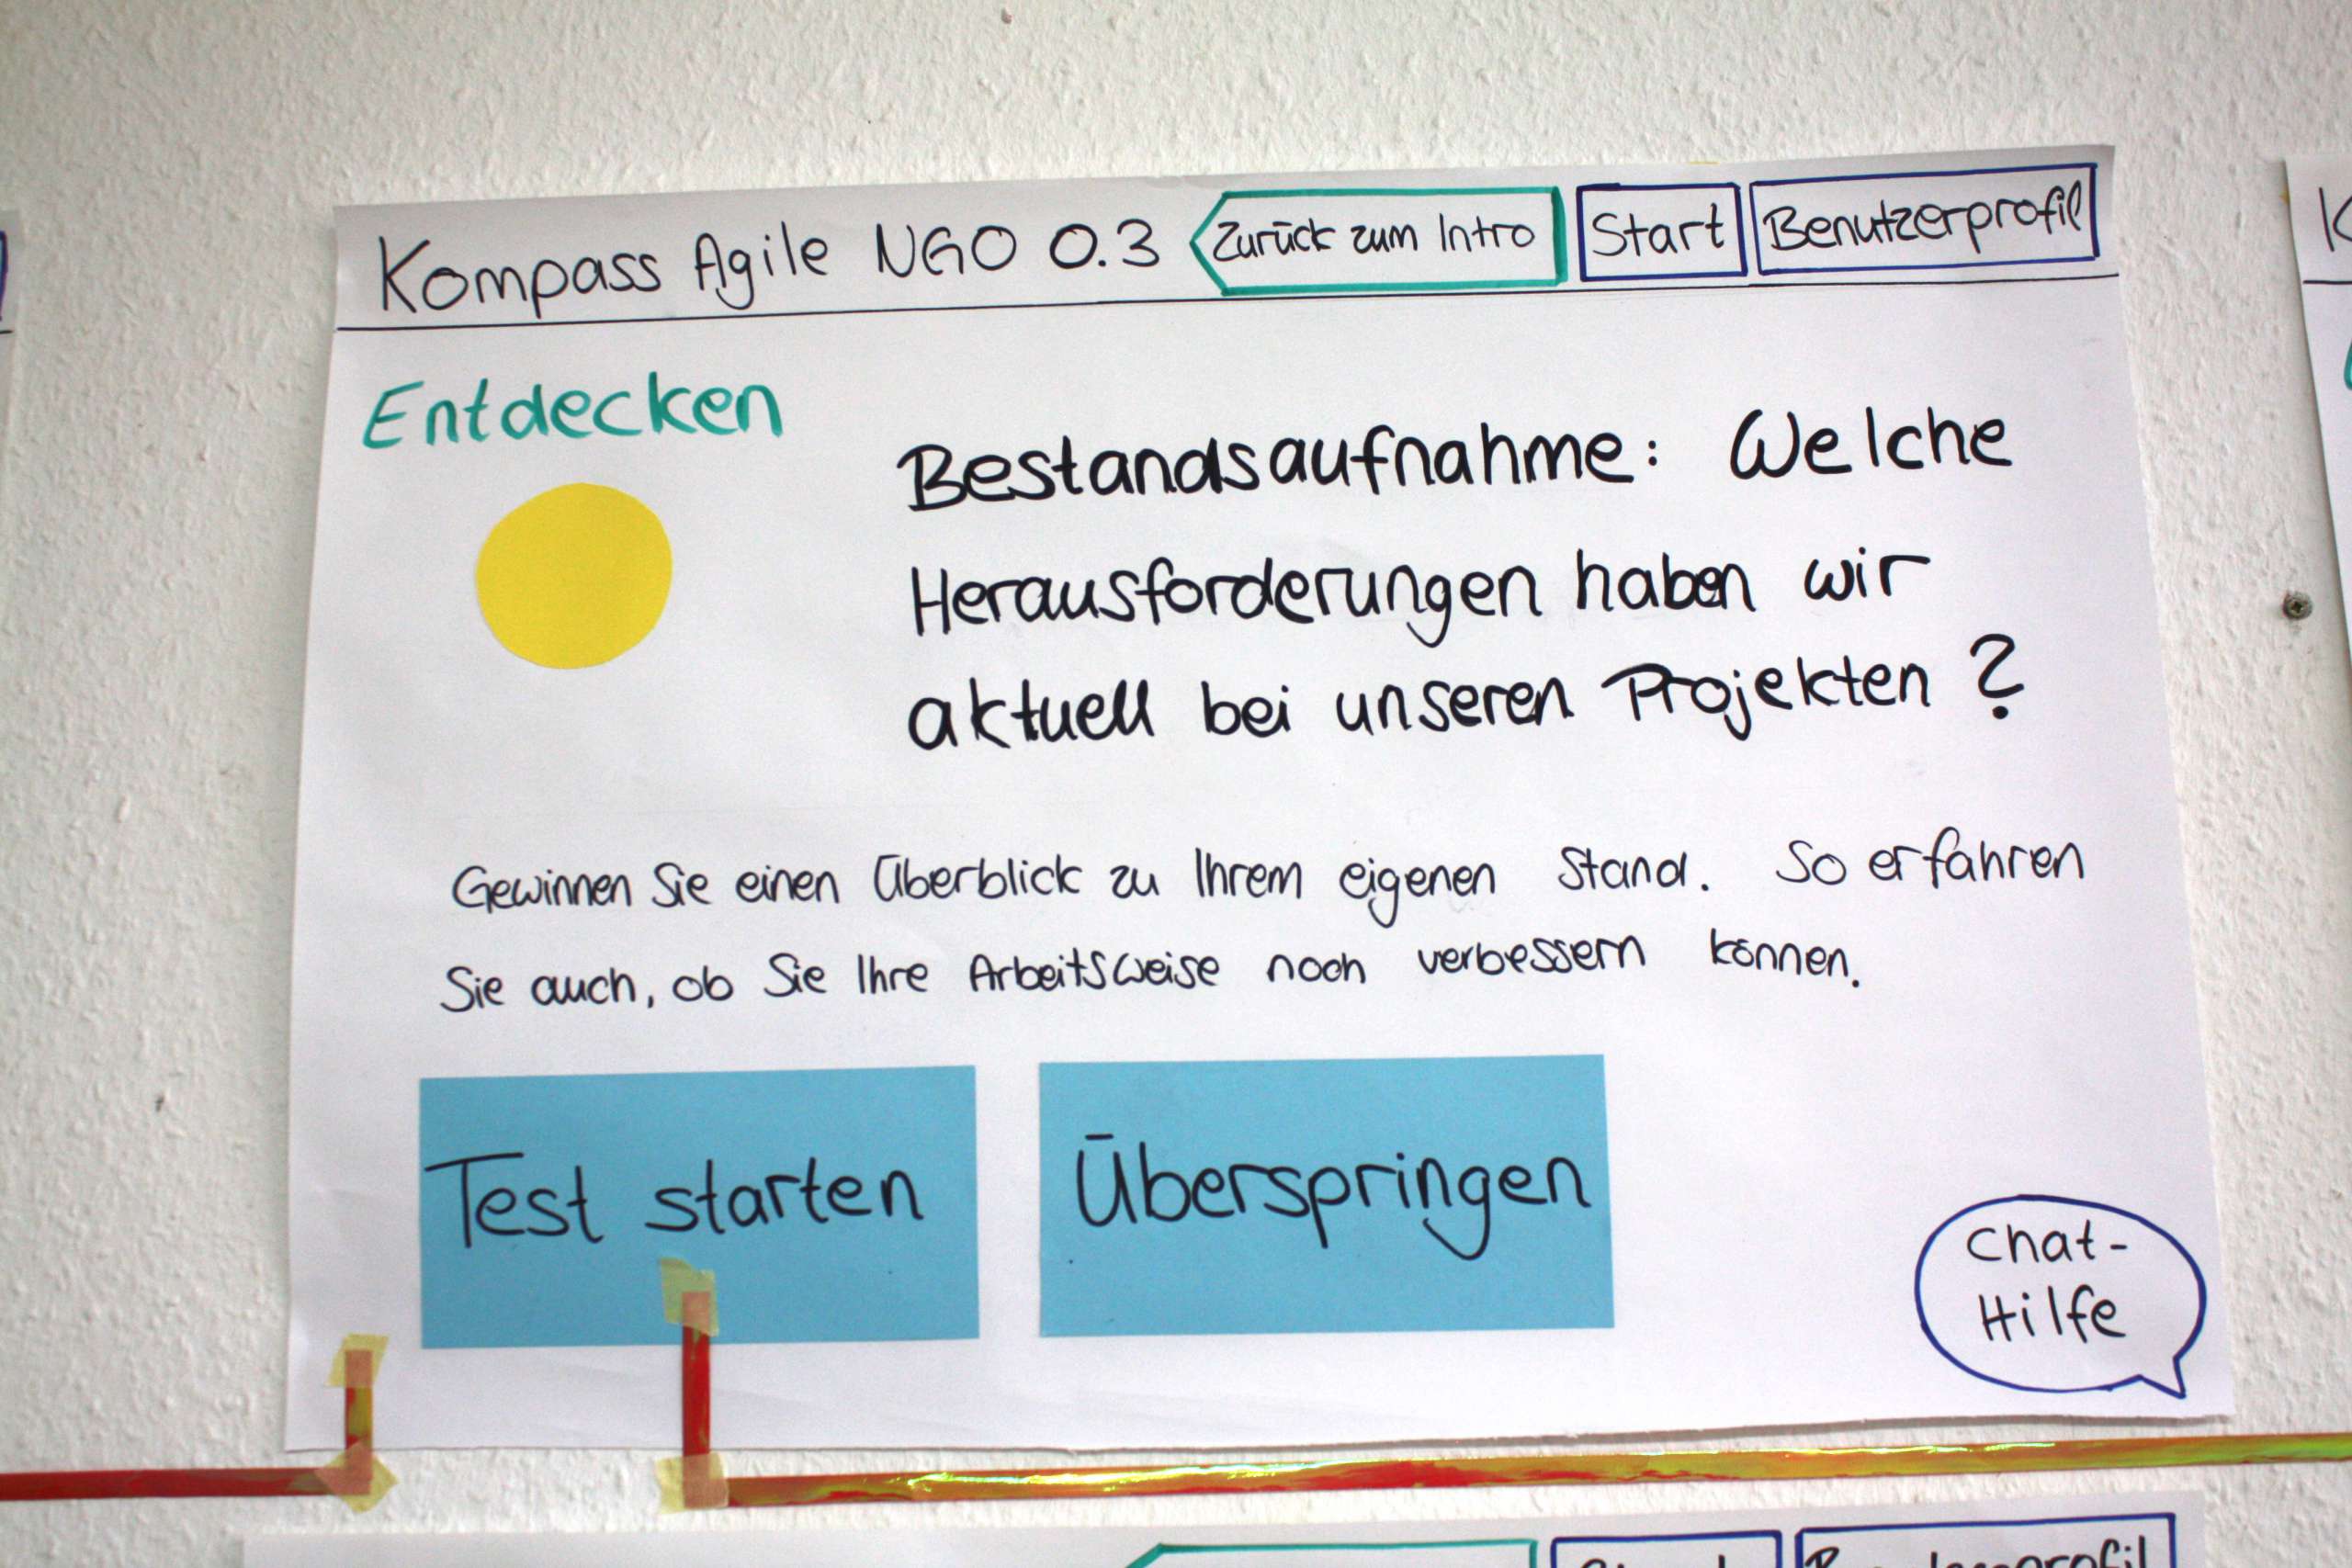 Kompass Agile NGO 0.3
Zurück zum Intro
Start
Benutzerprofil
Entdecken
Bestandsaufnahme: Welche
Herausforderungen haben wir
aktuell bei unseren Projekten?
Gewinnen Sie einen Überblick zu Ihrem eigenen Stand. So erfahren
Sie auch, ob Sie Ihre Arbeitsweise noch verbessern können.
Test starten
Überspringen
Chat-
Hilfe